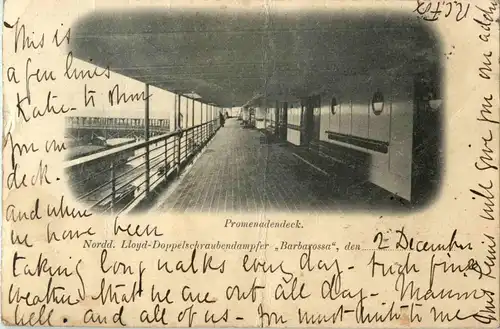 This is
a few lines
Katie - to show
you on
deck.
and where
we have been
Promenadendeck.
Nordd. Lloyd-Doppelschraubendampfer „Barbarossa“, den 2 December
taking long walks every day - such fine
weather that we are out all day. Mamie
well. and all of us - You must write to me
This will give you our address
R.C. Fox